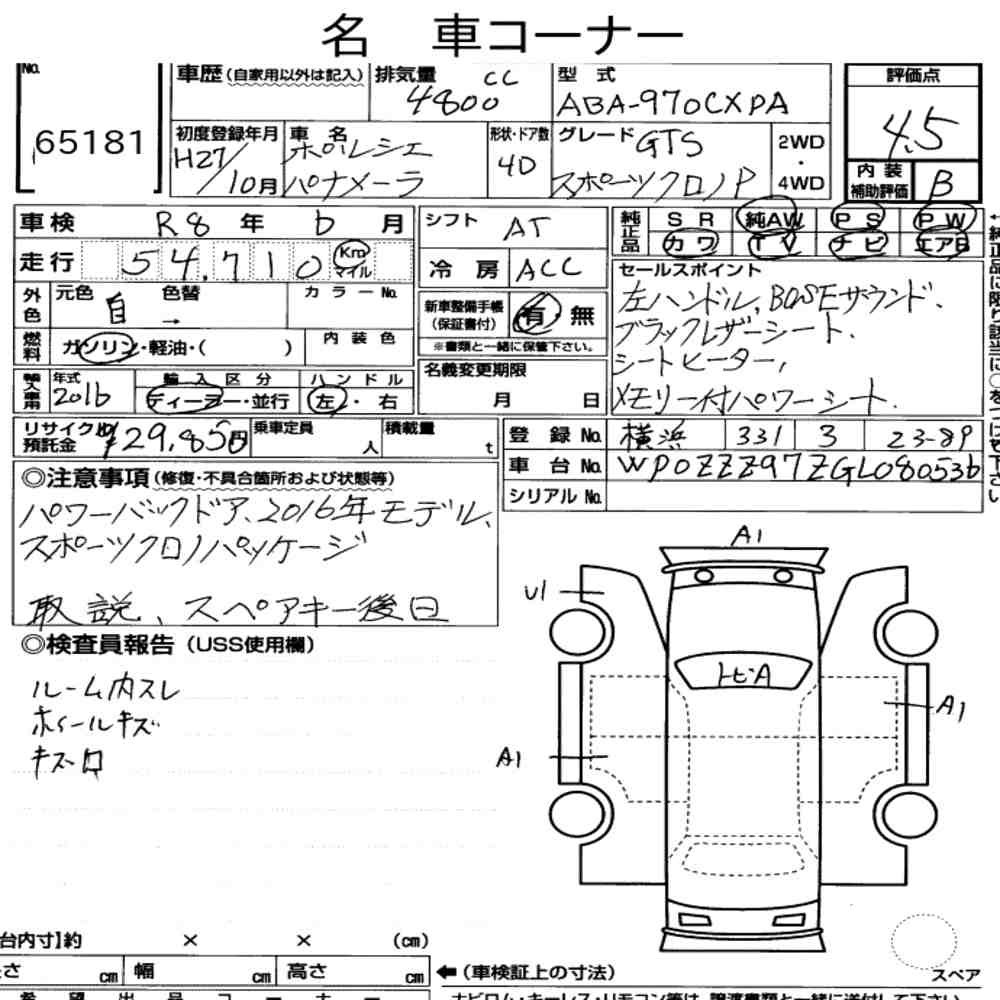 名 車コーナー
No.
65181
車歴(自家用以外は記入) 排気量 4800 cc 型式 ABA-970CXPA
評価点 4.5
初度登録年月 H27/10月 車名 ポルシェ パナメーラ 形状・ドア数 4D グレード GTS スポーツクロノP 2WD・4WD
内装補助評価 B
車検 R8年6月
シフト AT
純正品 SR 純AW PS PW
カワ TV ナビ エアB
走行 54,710 Km マイル
冷房 ACC
セールスポイント
左ハンドル、BOSEサウンド、
ブラックレザーシート、
シートヒーター、
メモリー付パワーシート
外色 元色 白 色替 → カラーNo.
新車整備手帳(保証書付) 有 無
※書類と一緒に保管下さい。
燃料 ガソリン・軽油・( ) 内装色
年式 2016 輸入区分 ディーラー・並行 ハンドル 左・右
名義変更期限 月 日
リサイクル預託金 ¥29,850円 乗車定員 人 積載量 t
登録No. 横浜 331 ヨ 23-89
車台No. WP0ZZZ97ZGL080536
シリアルNo.
◎注意事項(修復・不具合箇所および状態等)
パワーバックドア、2016年モデル、
スポーツクロノパッケージ
取説、スペアキー後日
◎検査員報告(USS使用欄)
ルーム内スレ
ホイールキズ
キズ口
A1
U1
トビ・A
A1
A1
台内寸】約 × × (cm)
さ cm 幅 cm 高さ cm
←(車検証上の寸法)
スペア
希望出品コーナー
ナビロム・キーレス・リモコン等は、譲渡書類と一緒に送付して下さい。